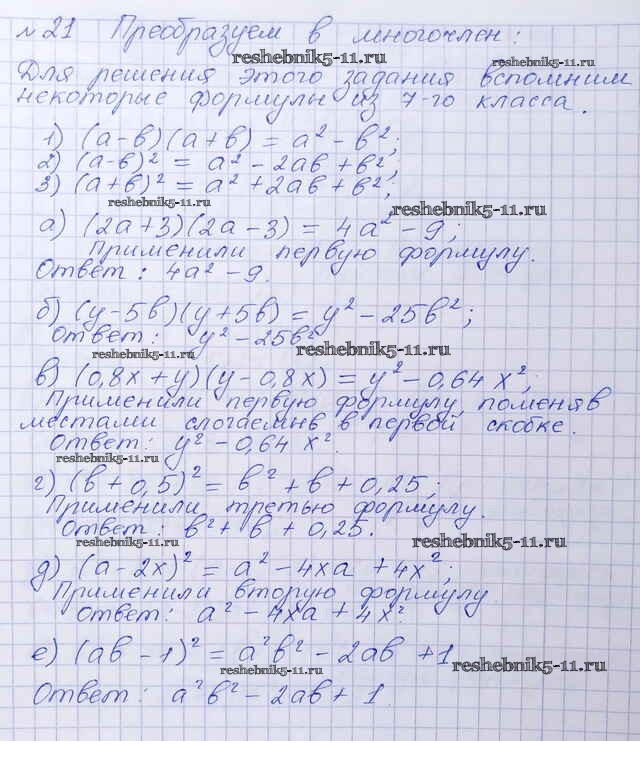 №21 Преобразуем в многочлен:
reshebnik5-11.ru
reshebnik5-11.ru
Для решения этого задания вспомним
некоторые формулы из 7-го класса.
1) (a-b)(a+b) = a² - b²;
2) (a-b)² = a² - 2ab + b²;
3) (a+b)² = a² + 2ab + b²;
reshebnik5-11.ru
reshebnik5-11.ru
а) (2a+3)(2a-3) = 4a² - 9;
Применили первую формулу.
Ответ: 4a² - 9.
б) (y-5b)(y+5b) = y² - 25b²;
Ответ: y² - 25b²
reshebnik5-11.ru
reshebnik5-11.ru
в) (0,8x+y)(y-0,8x) = y² - 0,64x²;
Применили первую формулу, поменяв
местами слогаемые в первой скобке.
Ответ: y² - 0,64x².
reshebnik5-11.ru
г) (b+0,5)² = b² + b + 0,25;
Применили третью формулу.
Ответ: b² + b + 0,25.
reshebnik5-11.ru
reshebnik5-11.ru
д) (a-2x)² = a² - 4xa + 4x²;
Применили вторую формулу
Ответ: a² - 4xa + 4x²
е) (ab-1)² = a²b² - 2ab + 1
reshebnik5-11.ru
reshebnik5-11.ru
Ответ: a²b² - 2ab + 1.